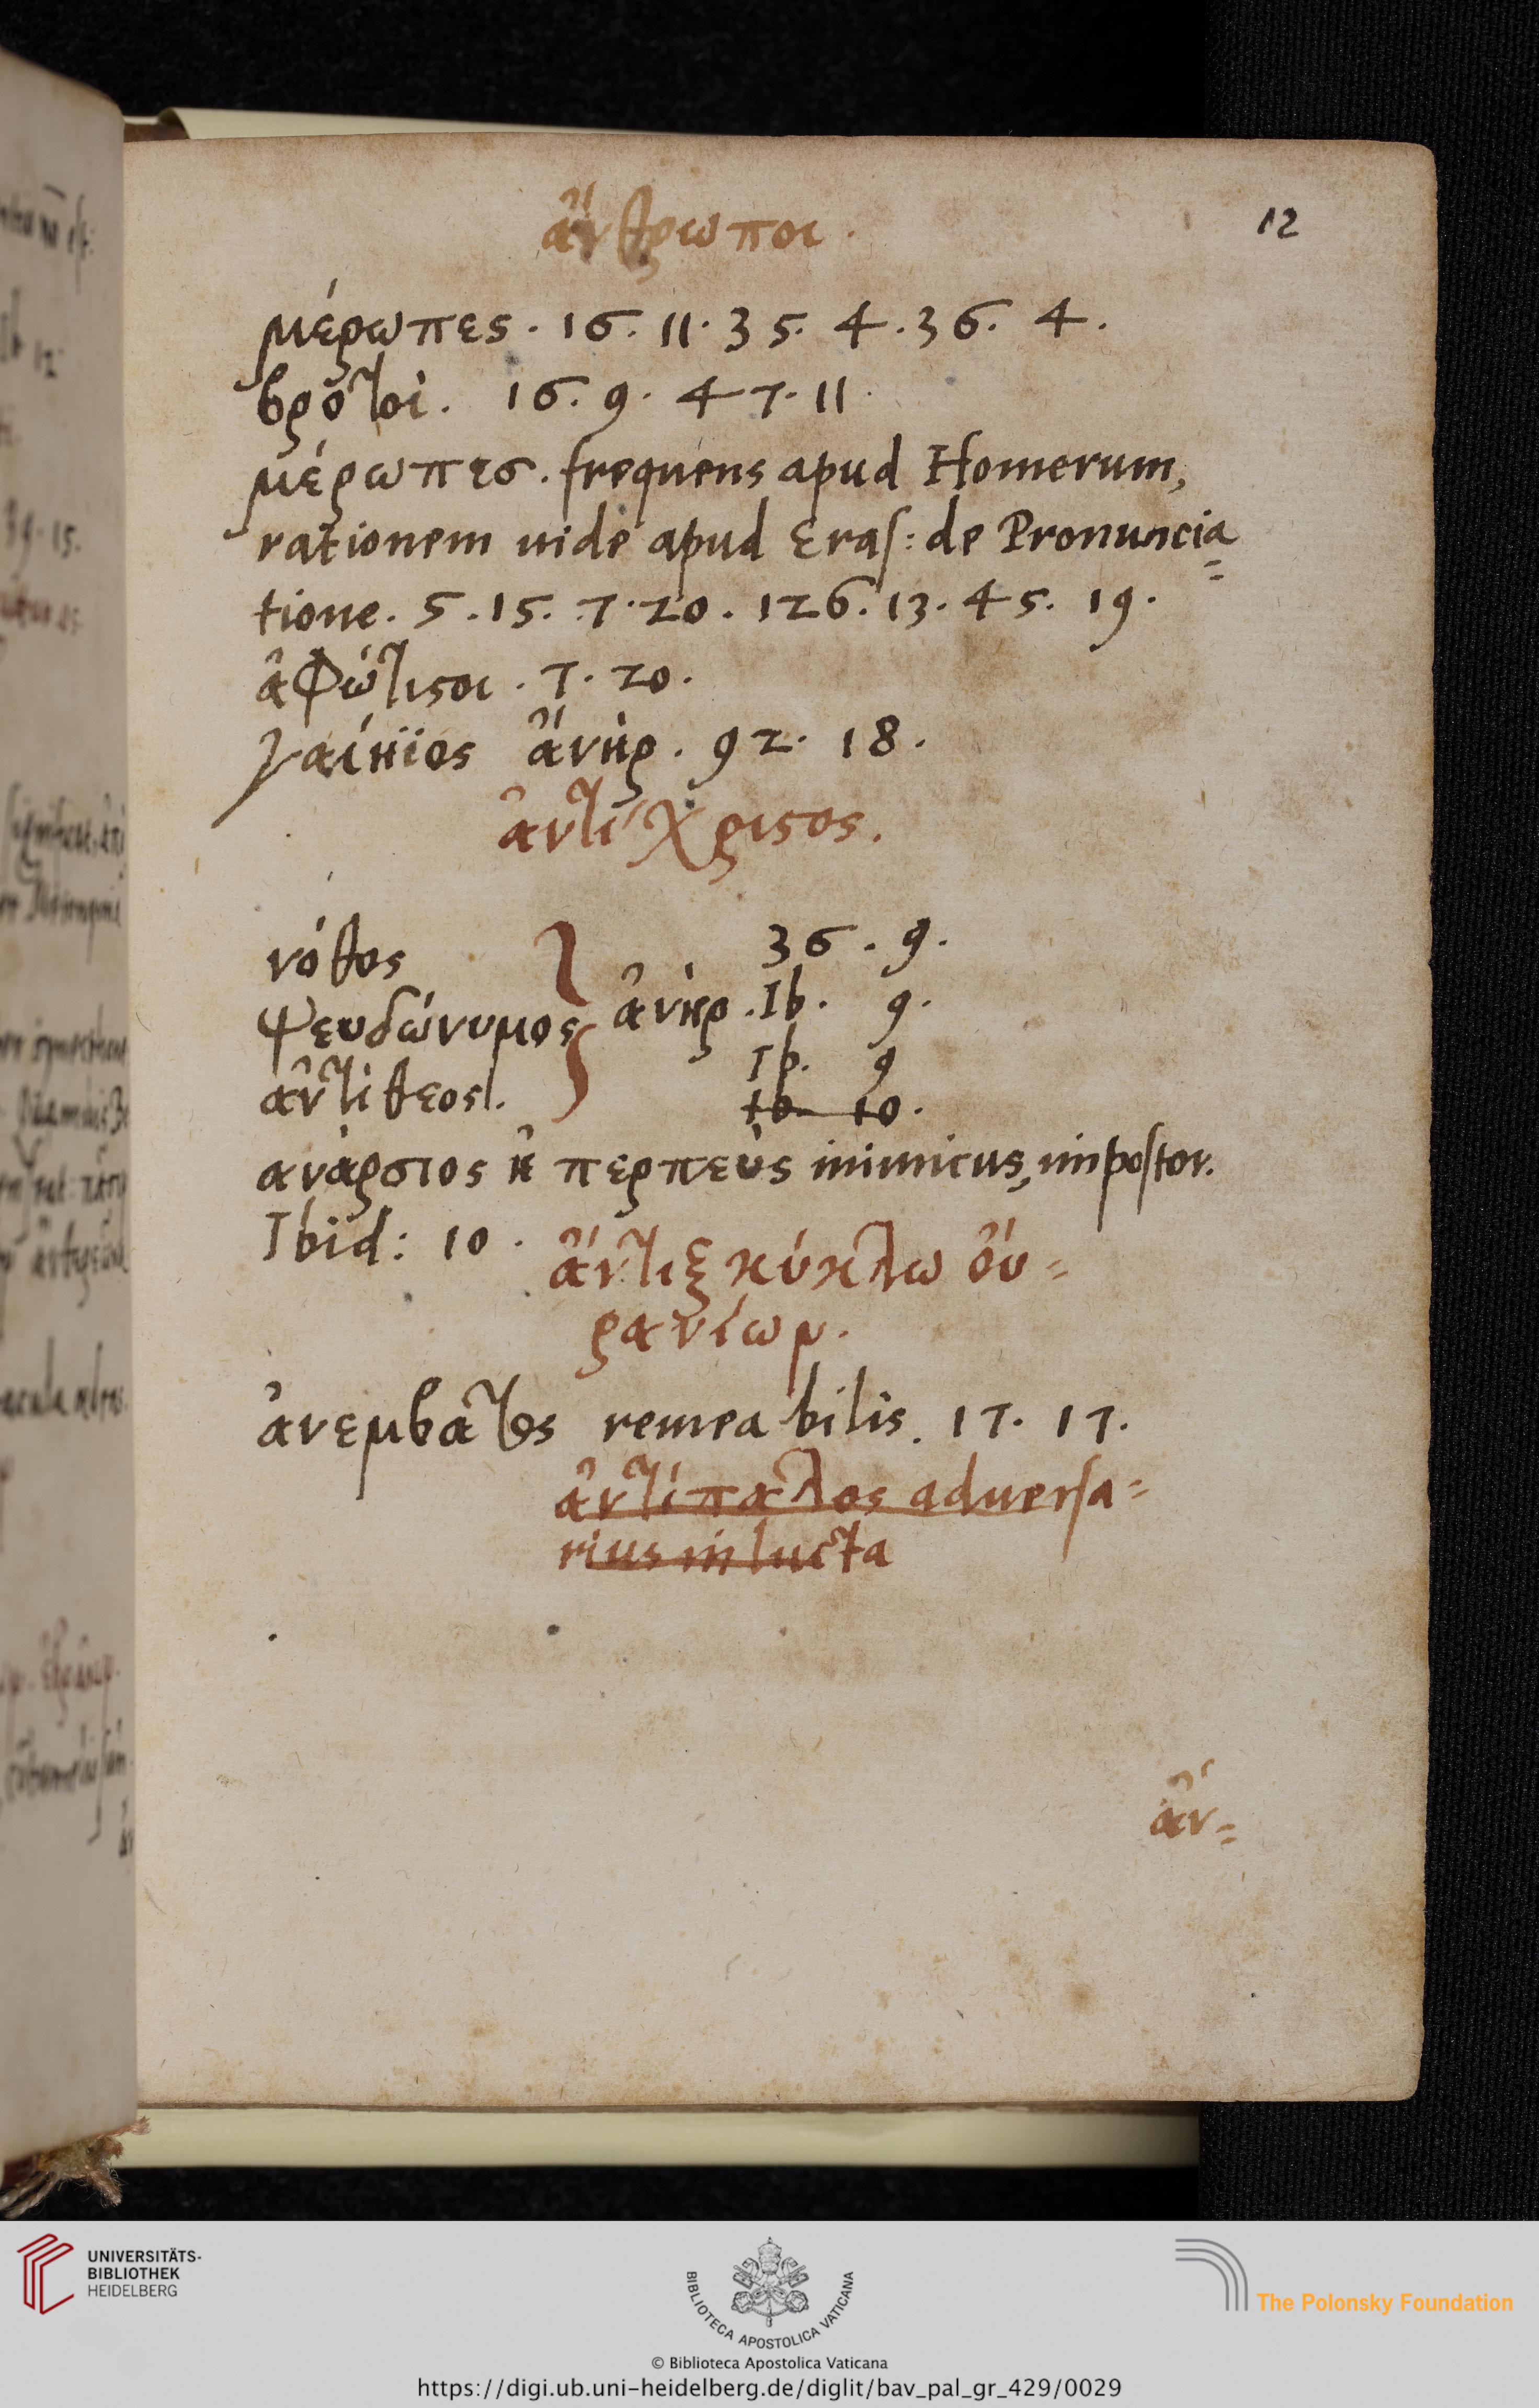 12
ἄνθρωποι.
μέρωπες. 16. 11. 35. 4. 36. 4.
βροτοὶ. 16. 9. 47. 11.
μέρωπεσ. frequens apud Homerum,
rationem uide apud Eras: de Pronuncia=
tione. 5. 15. 7. 20. 126. 13. 45. 19.
ἀφώτιςοι. 7. 20.
γαίηϊος ἄνὴρ. 92. 18.
ἀντίχριςος.
νόθος 36. 9.
ψευδώνυμος ἀνὴρ. Ib. 9.
ἀντίθεος. Ib. 9
10. 10.
ανάρσιος ἢ περπεὺς inimicus, impostor.
Ibid: 10. ἄντιξ κύκλω ὄυ=
ρανίων.
ἀνεμβατος remeabilis. 17. 17.
ἀντίπαλος aduersa=
rius in lucta
ἄν=
UNIVERSITÄTS-
BIBLIOTHEK
HEIDELBERG
BIBLIOTECA APOSTOLICA VATICANA
The Polonsky Foundation
© Biblioteca Apostolica Vaticana
https://digi.ub.uni-heidelberg.de/diglit/bav_pal_gr_429/0029